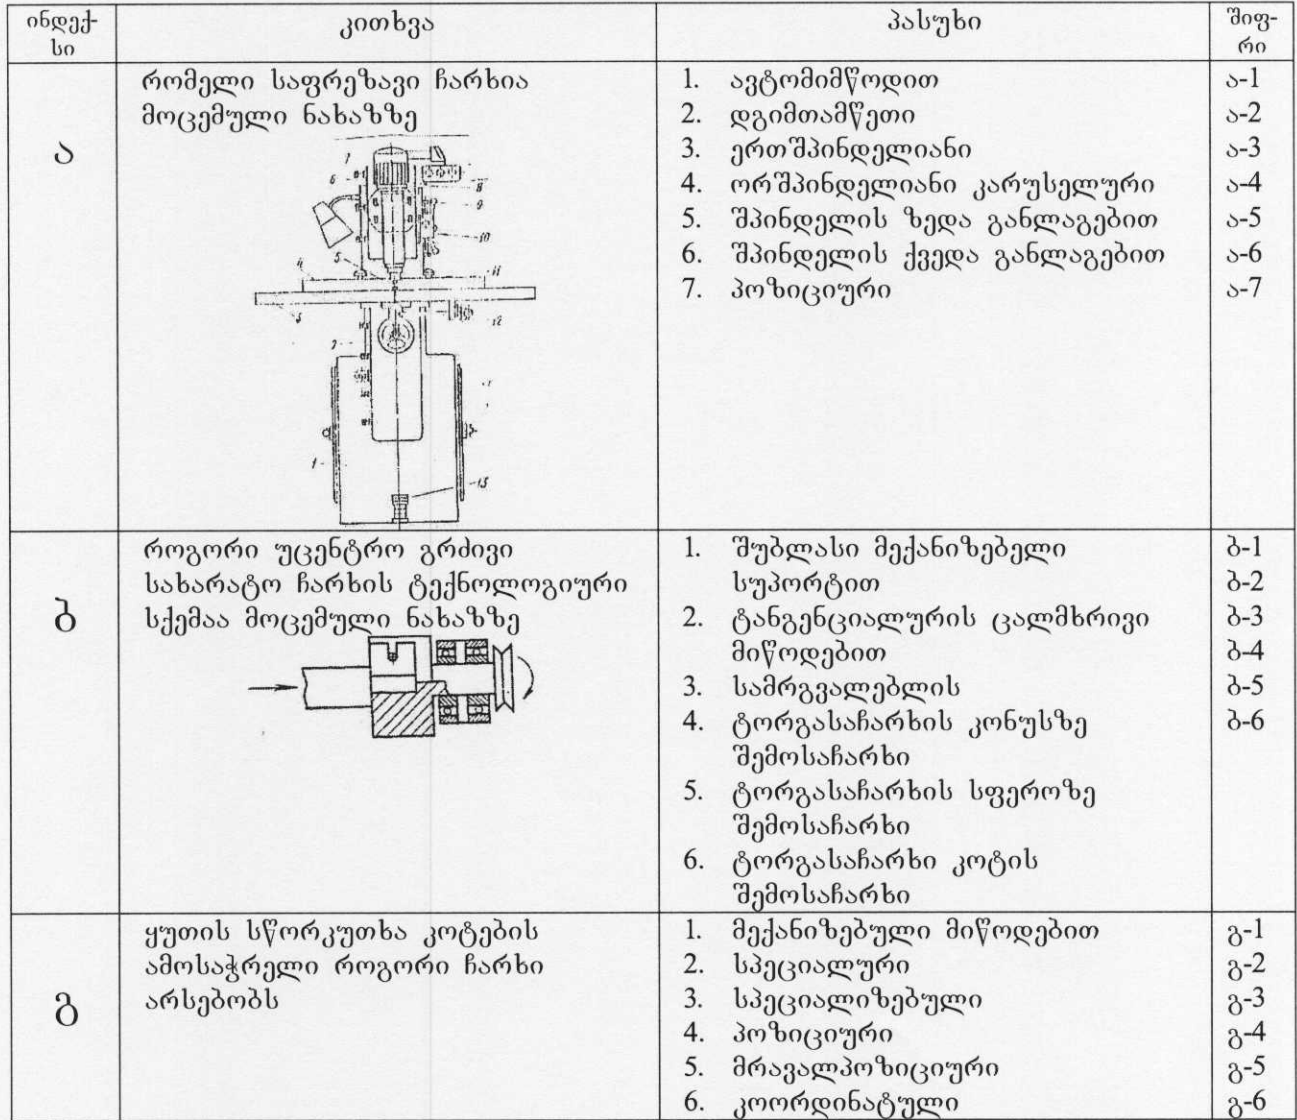 ინდექ-
სი
კითხვა
პასუხი
შიფ-
რი
ა
რომელი საფრეზავი ჩარხია
მოცემული ნახაზზე
7
6
8
9
10
5
4
11
3
12
2
1
13
1. ავტომიმწოდით
2. დგიმთამწეთი
3. ერთშპინდელიანი
4. ორშპინდელიანი კარუსელური
5. შპინდელის ზედა განლაგებით
6. შპინდელის ქვედა განლაგებით
7. პოზიციური
ა-1
ა-2
ა-3
ა-4
ა-5
ა-6
ა-7
ბ
როგორი უცენტრო გრძივი
სახარატო ჩარხის ტექნოლოგიური
სქემაა მოცემული ნახაზზე
1. შუბლასი მექანიზებელი
სუპორტით
2. ტანგენციალურის ცალმხრივი
მიწოდებით
3. სამრგვალებლის
4. ტორგასაჩარხის კონუსზე
შემოსაჩარხი
5. ტორგასაჩარხის სფეროზე
შემოსაჩარხი
6. ტორგასაჩარხი კოტის
შემოსაჩარხი
ბ-1
ბ-2
ბ-3
ბ-4
ბ-5
ბ-6
გ
ყუთის სწორკუთხა კოტების
ამოსაჭრელი როგორი ჩარხი
არსებობს
1. მექანიზებული მიწოდებით
2. სპეციალური
3. სპეციალიზებული
4. პოზიციური
5. მრავალპოზიციური
6. კოორდინატული
გ-1
გ-2
გ-3
გ-4
გ-5
გ-6